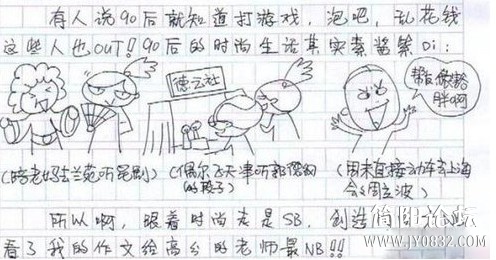 有人说90后就知道打游戏，泡吧，乱花钱
这些人也OUT！90后的时尚生活其实素酱紫Di：
德云社
我以做给胖啊
(陪老妈去兰苑听昆剧)
(偶尔飞天津听郭德纲的段子)
(周末直接动车去上海会会周立波)
所以啊，跟着时尚走是SB，创造
看了我的作文给高分的老师最NB!!
简阳论坛
www.JY0832.com